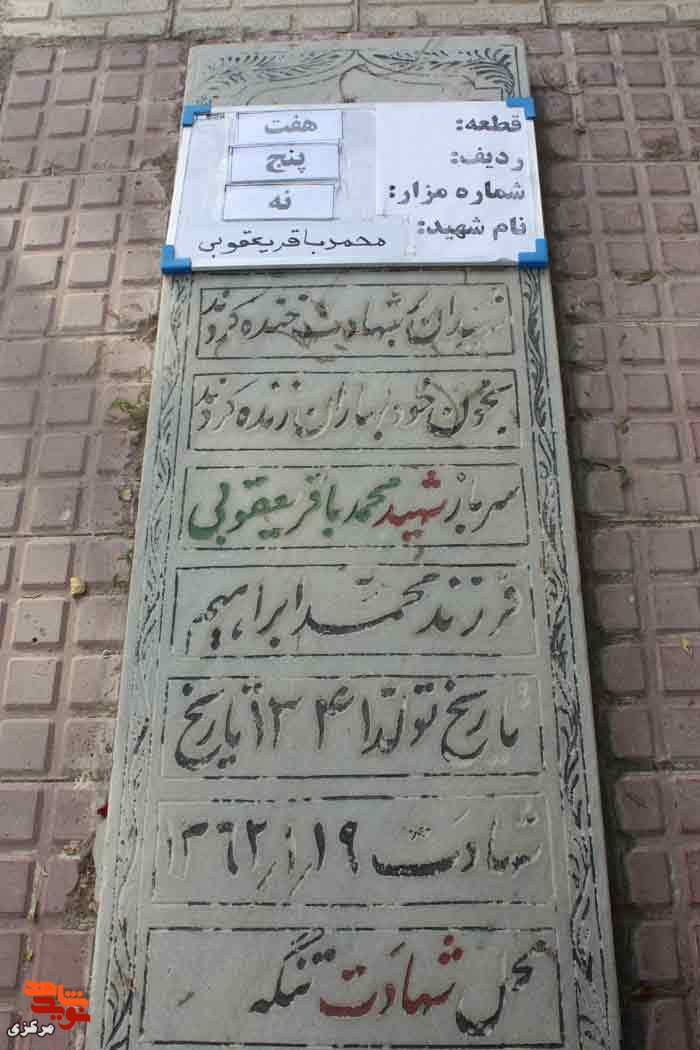 قطعه: هفت
ردیف: پنج
شماره مزار: نه
نام شهید: محمدباقر یعقوبی
شهیدان بر شهادت خنده کردند
بخون خود بهاران زنده کردند
سرباز شهید محمد باقر یعقوبی
فرزند محمد ابراهیم
تاریخ تولد ۱۳۴۱ تاریخ
شهادت ۱۹ ر ۱ ر ۱۳۶۲
محل شهادت تنگه
نوید شاهد
مرکزی